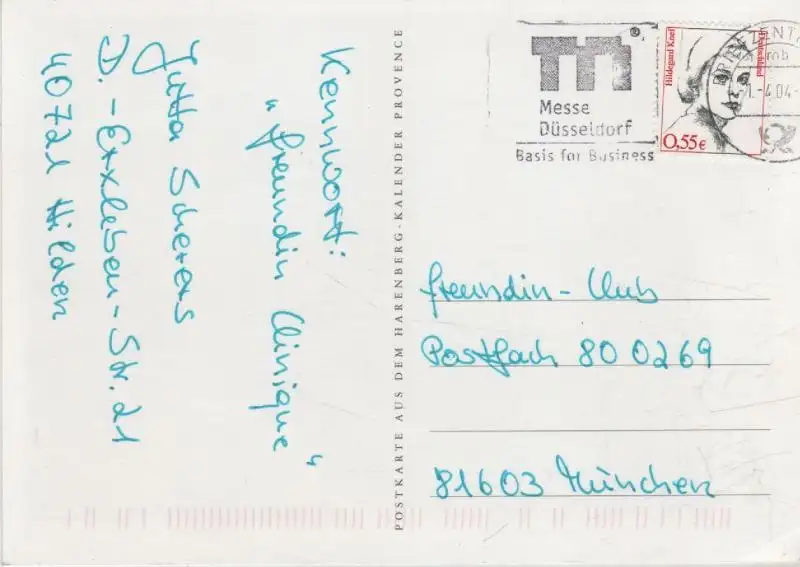 Kennwort:
„freundin Clinique"
Jutta Scherers
D.-Erxleben-Str. 21
40721 Hilden
POSTKARTE AUS DEM HARENBERG-KALENDER PROVENCE
Messe
Düsseldorf
Basis for Business
Hildegard Knef
Deutschland
0,55€
BRIEFZENTR
freundin-Club
Postfach 80 02 69
81603 München